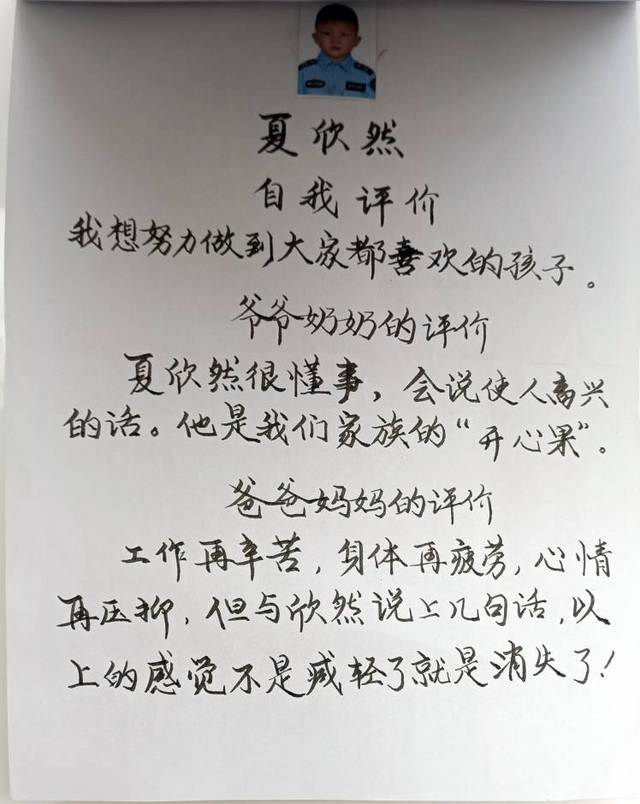 夏欣然
自我评价
我想努力做到大家都喜欢的孩子。
爷爷奶奶的评价
夏欣然很懂事，会说使人高兴
的话。他是我们家族的“开心果”。
爸爸妈妈的评价
工作再辛苦，身体再疲劳，心情
再压抑，但与欣然说上几句话，以
上的感觉不是减轻了就是消失了！